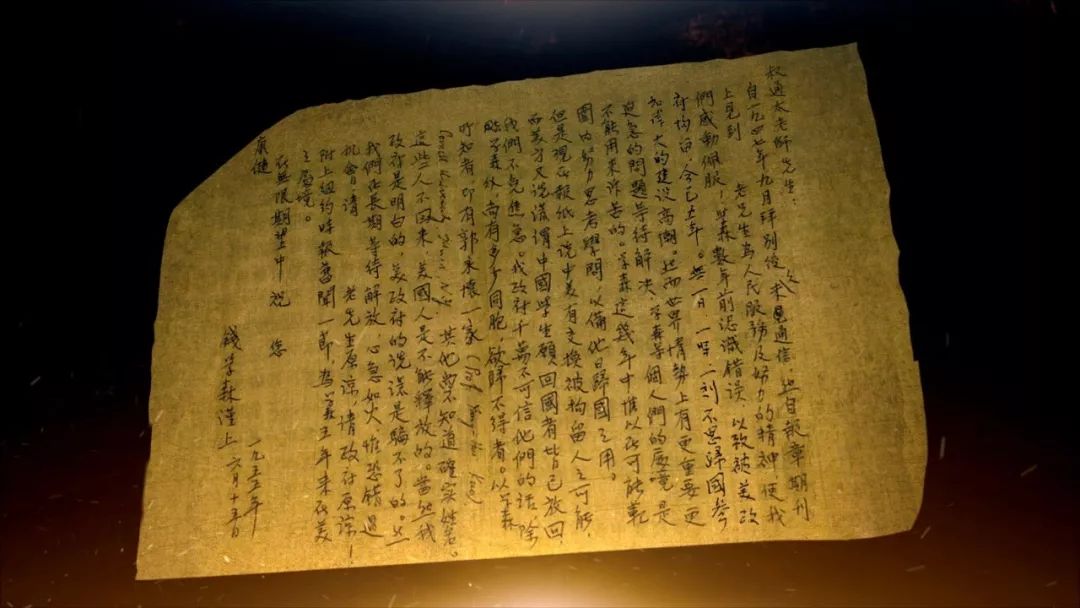 叔通太老师先生：
自一九四七年九月拜别後久未通信，然自報章期刊
上見到 老先生為人民服務及努力的精神，使我
們感動佩服！學森數年前認識錯误，以致被美政
府拘留，今已五年。無一日、一時、一刻不思歸國参
加偉大的建設高潮。然而世界情势上有更重要更
迫急的問題等待解决，學森等個人們的處境是
不能用来诉苦的。學森這幾年中惟以在可能範
圍内努力思考學問，以備他日歸國之用。
但是現在報紙上説中美有交換被拘留人之可能，
而美方又説謊謂中國學生願回國者皆已放回，
我們不免焦急。我政府千萬不可信他們的話，除
學森外，尚有多少同胞，欲歸不得者。以學森
所知者，即有郭永懷一家（Prof. Yung-huai Kuo,
Cornell 其他尚不知道確实姓名。
這些人不回来，美國人是不能釋放的。當然我
政府是明白的，美政府的説謊是騙不了的。然
我們在長期等待解放，心急如火，惟恐錯過
機會，請 老先生原谅，請政府原谅！
附上紐约時報舊聞一節，為學森五年来在美
之處境。
在無限期望中祝 您
康健
錢學森謹上
一九五五年
六月十五日